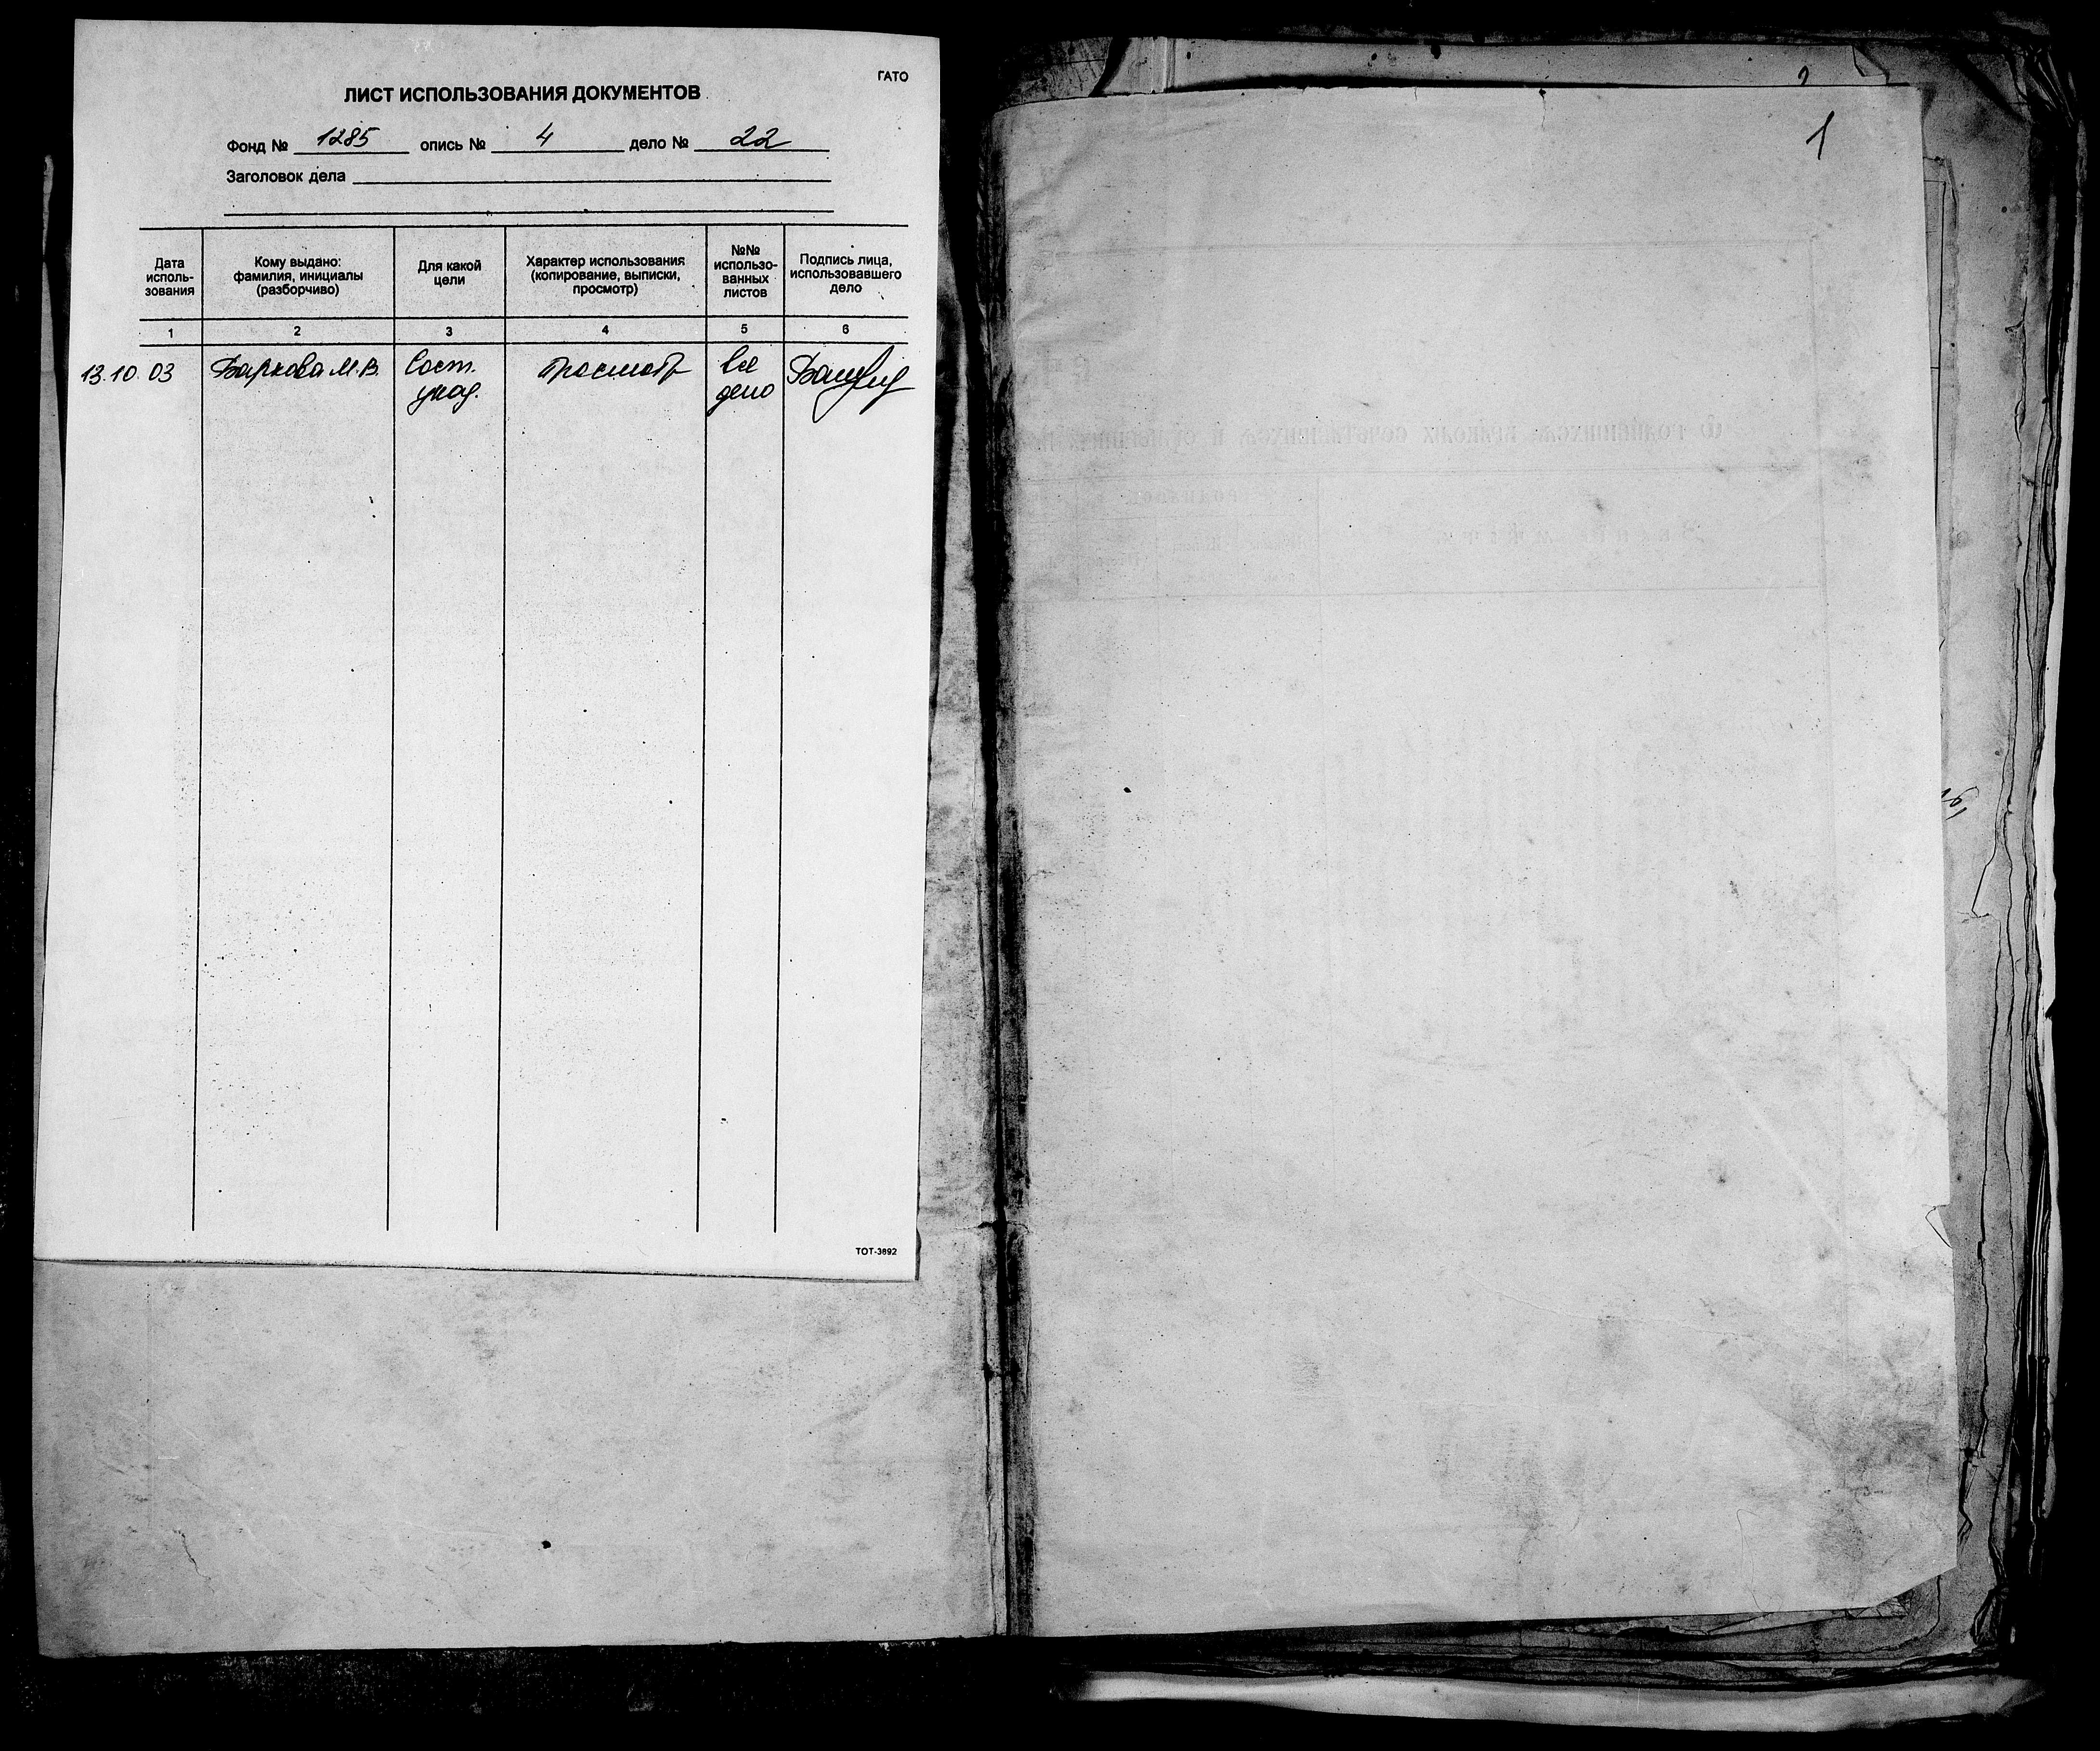 ГАТО
ЛИСТ ИСПОЛЬЗОВАНИЯ ДОКУМЕНТОВ
Фонд № 1285 опись № 4 дело № 22
Заголовок дела
Дата исполь-зования
Кому выдано: фамилия, инициалы (разборчиво)
Для какой цели
Характер использования (копирование, выписки, просмотр)
№№ использо-ванных листов
Подпись лица, использовавшего дело
1 2 3 4 5 6
13.10.03 Баркова М.В. Сост. указ. просмотр все дело
ТОТ-3892
1